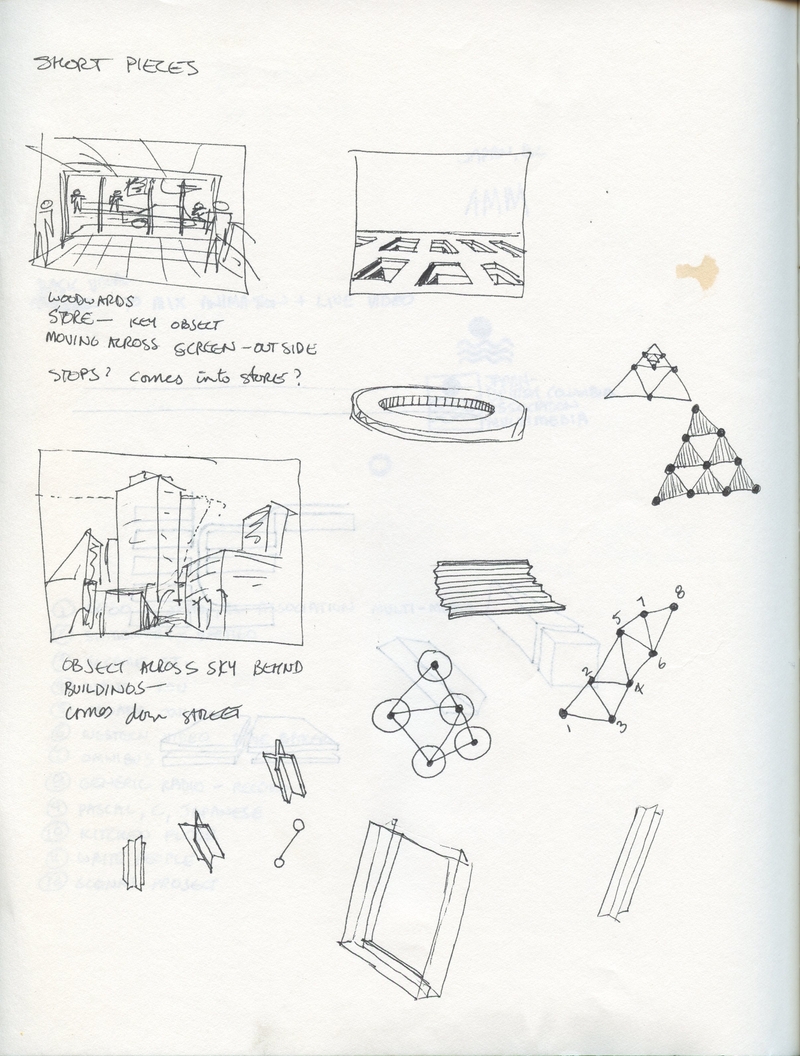 SHORT PIECES
WOODWARDS
STORE — KEY OBJECT
MOVING ACROSS SCREEN - OUTSIDE
STOPS? COMES INTO STORE?
OBJECT ACROSS SKY BEHIND
BUILDINGS —
COMES DOWN STREET
1
2
3
4
5
6
7
8